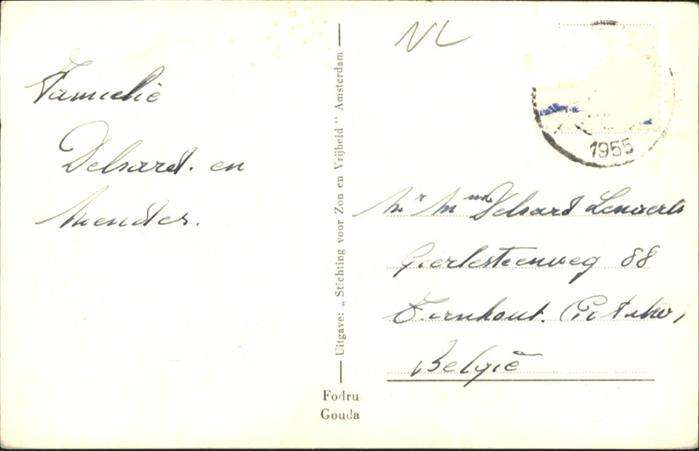 NL
Familie
Delsard. en
Uitgave: „Stichting voor Zon en Vrijheid" Amsterdam
1955
Mr Mme Delsard Lenaerts
Gierlesteenweg 88
Turnhout.
België
Fodru
Gouda